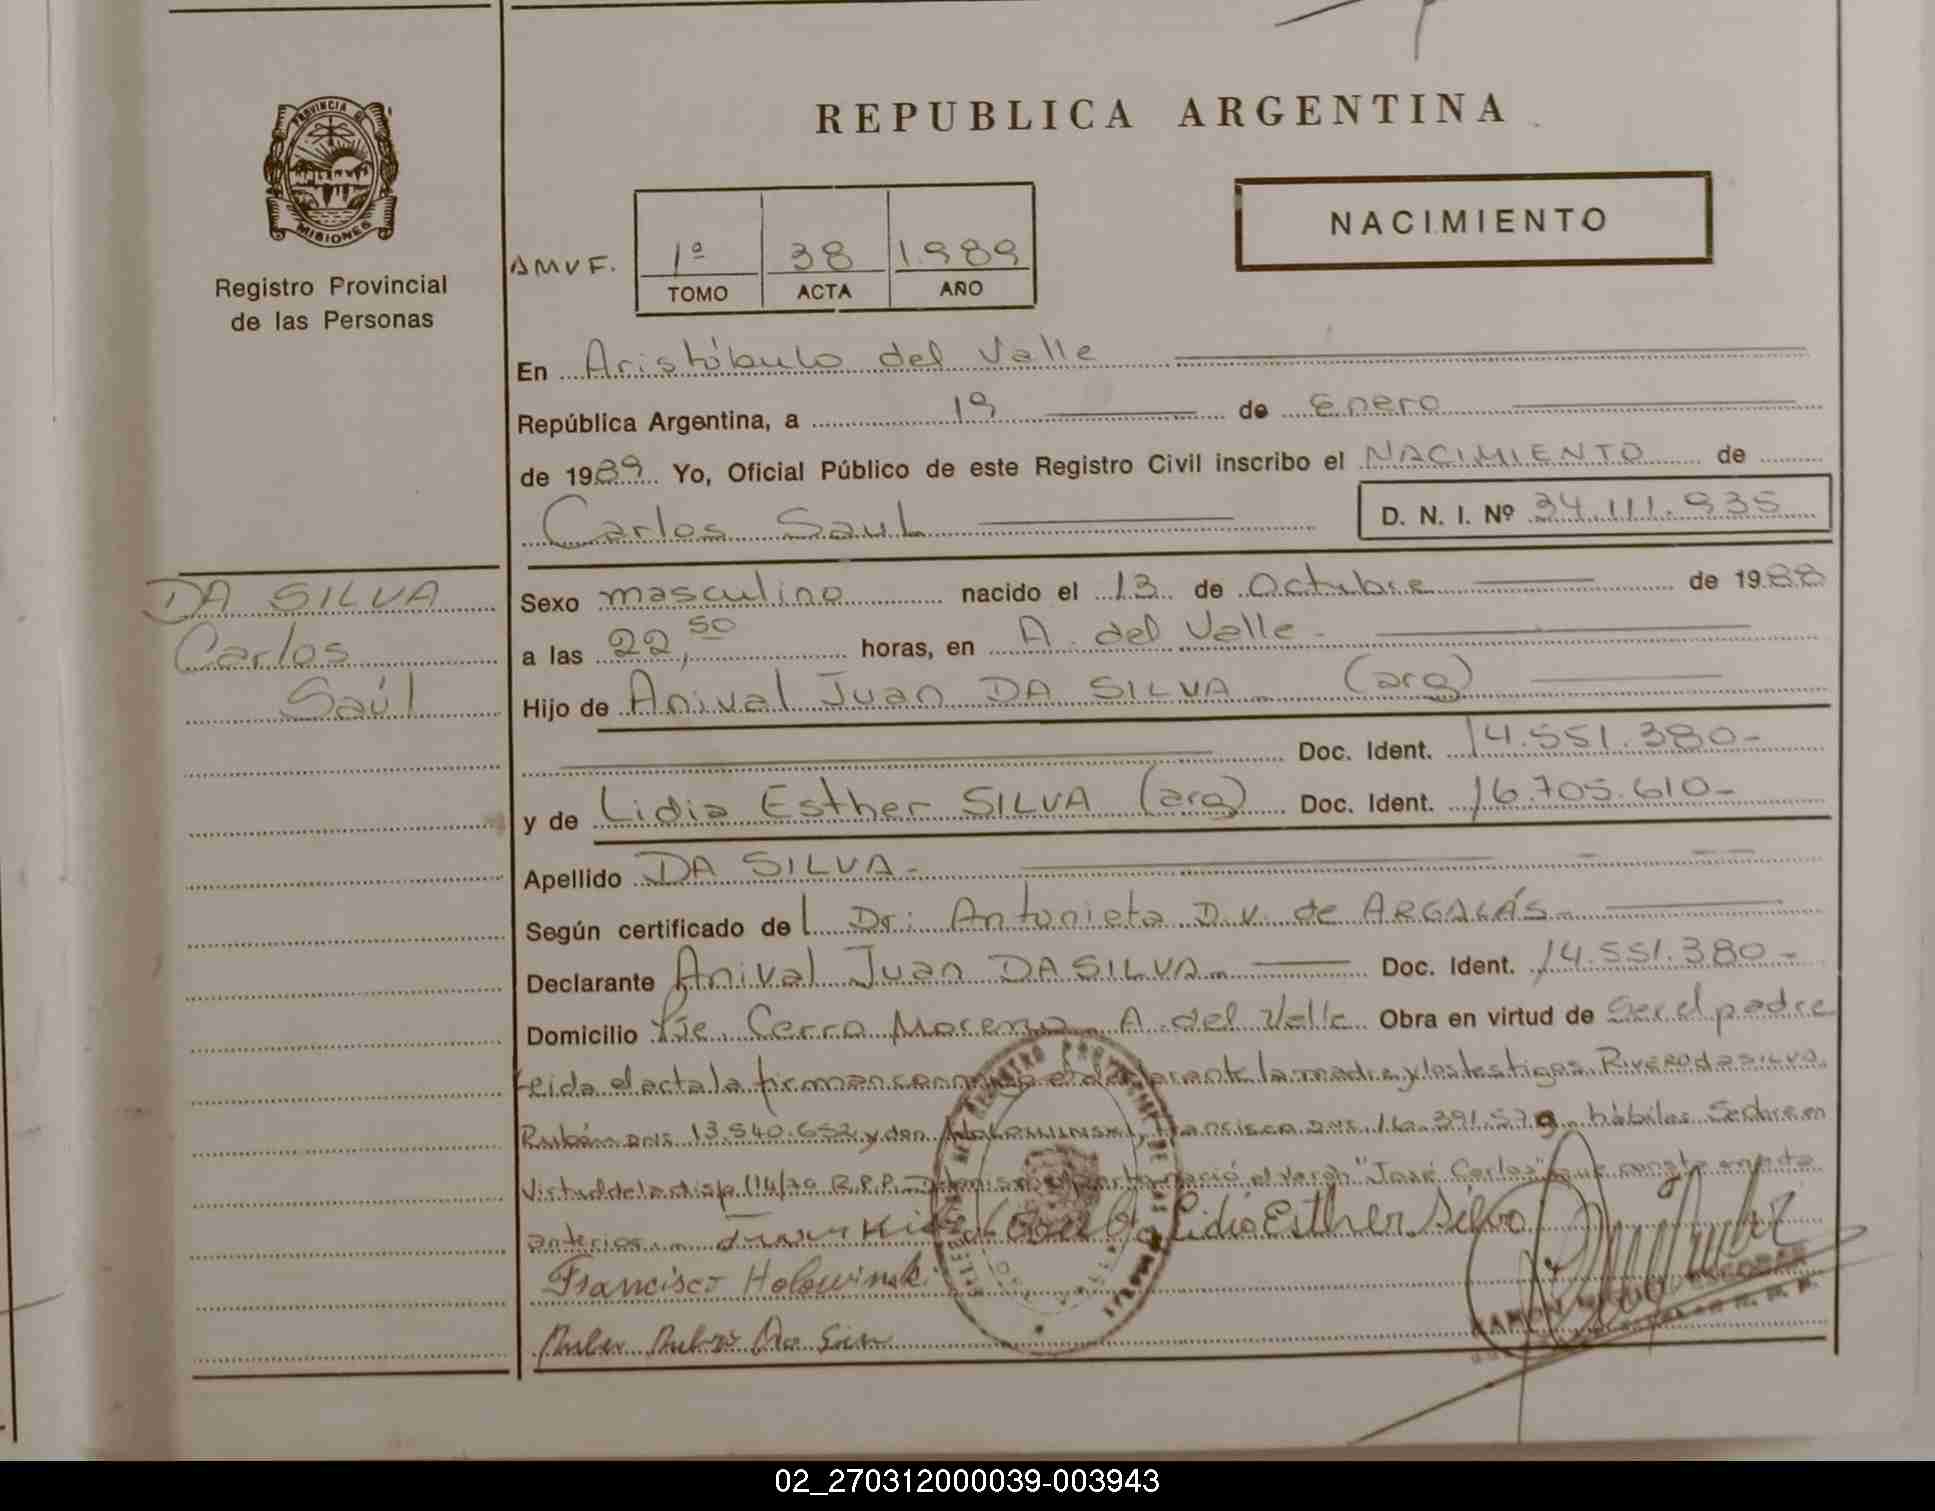 PROVINCIA DE
MISIONES
Registro Provincial
de las Personas
REPUBLICA ARGENTINA
NACIMIENTO
AMVF.
1º 38 1989
TOMO ACTA AÑO
En Aristóbulo del Valle
República Argentina, a 19 de Enero
de 1989 Yo, Oficial Público de este Registro Civil inscribo el NACIMIENTO de
Carlos Saul D. N. I. Nº 34.111.935
DA SILVA
Carlos
Saúl
Sexo masculino nacido el 13 de Octubre de 1988
a las 22,50 horas, en A. del Valle -
Hijo de Anival Juan DA SILVA (arg)
Doc. Ident. 14.551.380-
y de Lidia Esther SILVA (arg) Doc. Ident. 16.705.610-
Apellido DA SILVA -
Según certificado de l Dr: Antonieta D.V. de ARGALÁS
Declarante Anival Juan DA SILVA Doc. Ident. 14.551.380-
Domicilio Pje. Cerro Moreno A. del Valle Obra en virtud de ser el padre
leida el acta la firman conmigo el declarante la madre y los testigos RIVERO da SILVA
Rubén DNI 13.540.652 y don HOLOWINSKI, Francisco DNI 16.391.579 hábiles
virtud de la disp 114/70 R.P.P. nació el varón "José Carlos" que consta en acta
anterior. Lidia Esther Silva
Francisco Holowinski
02_270312000039-003943